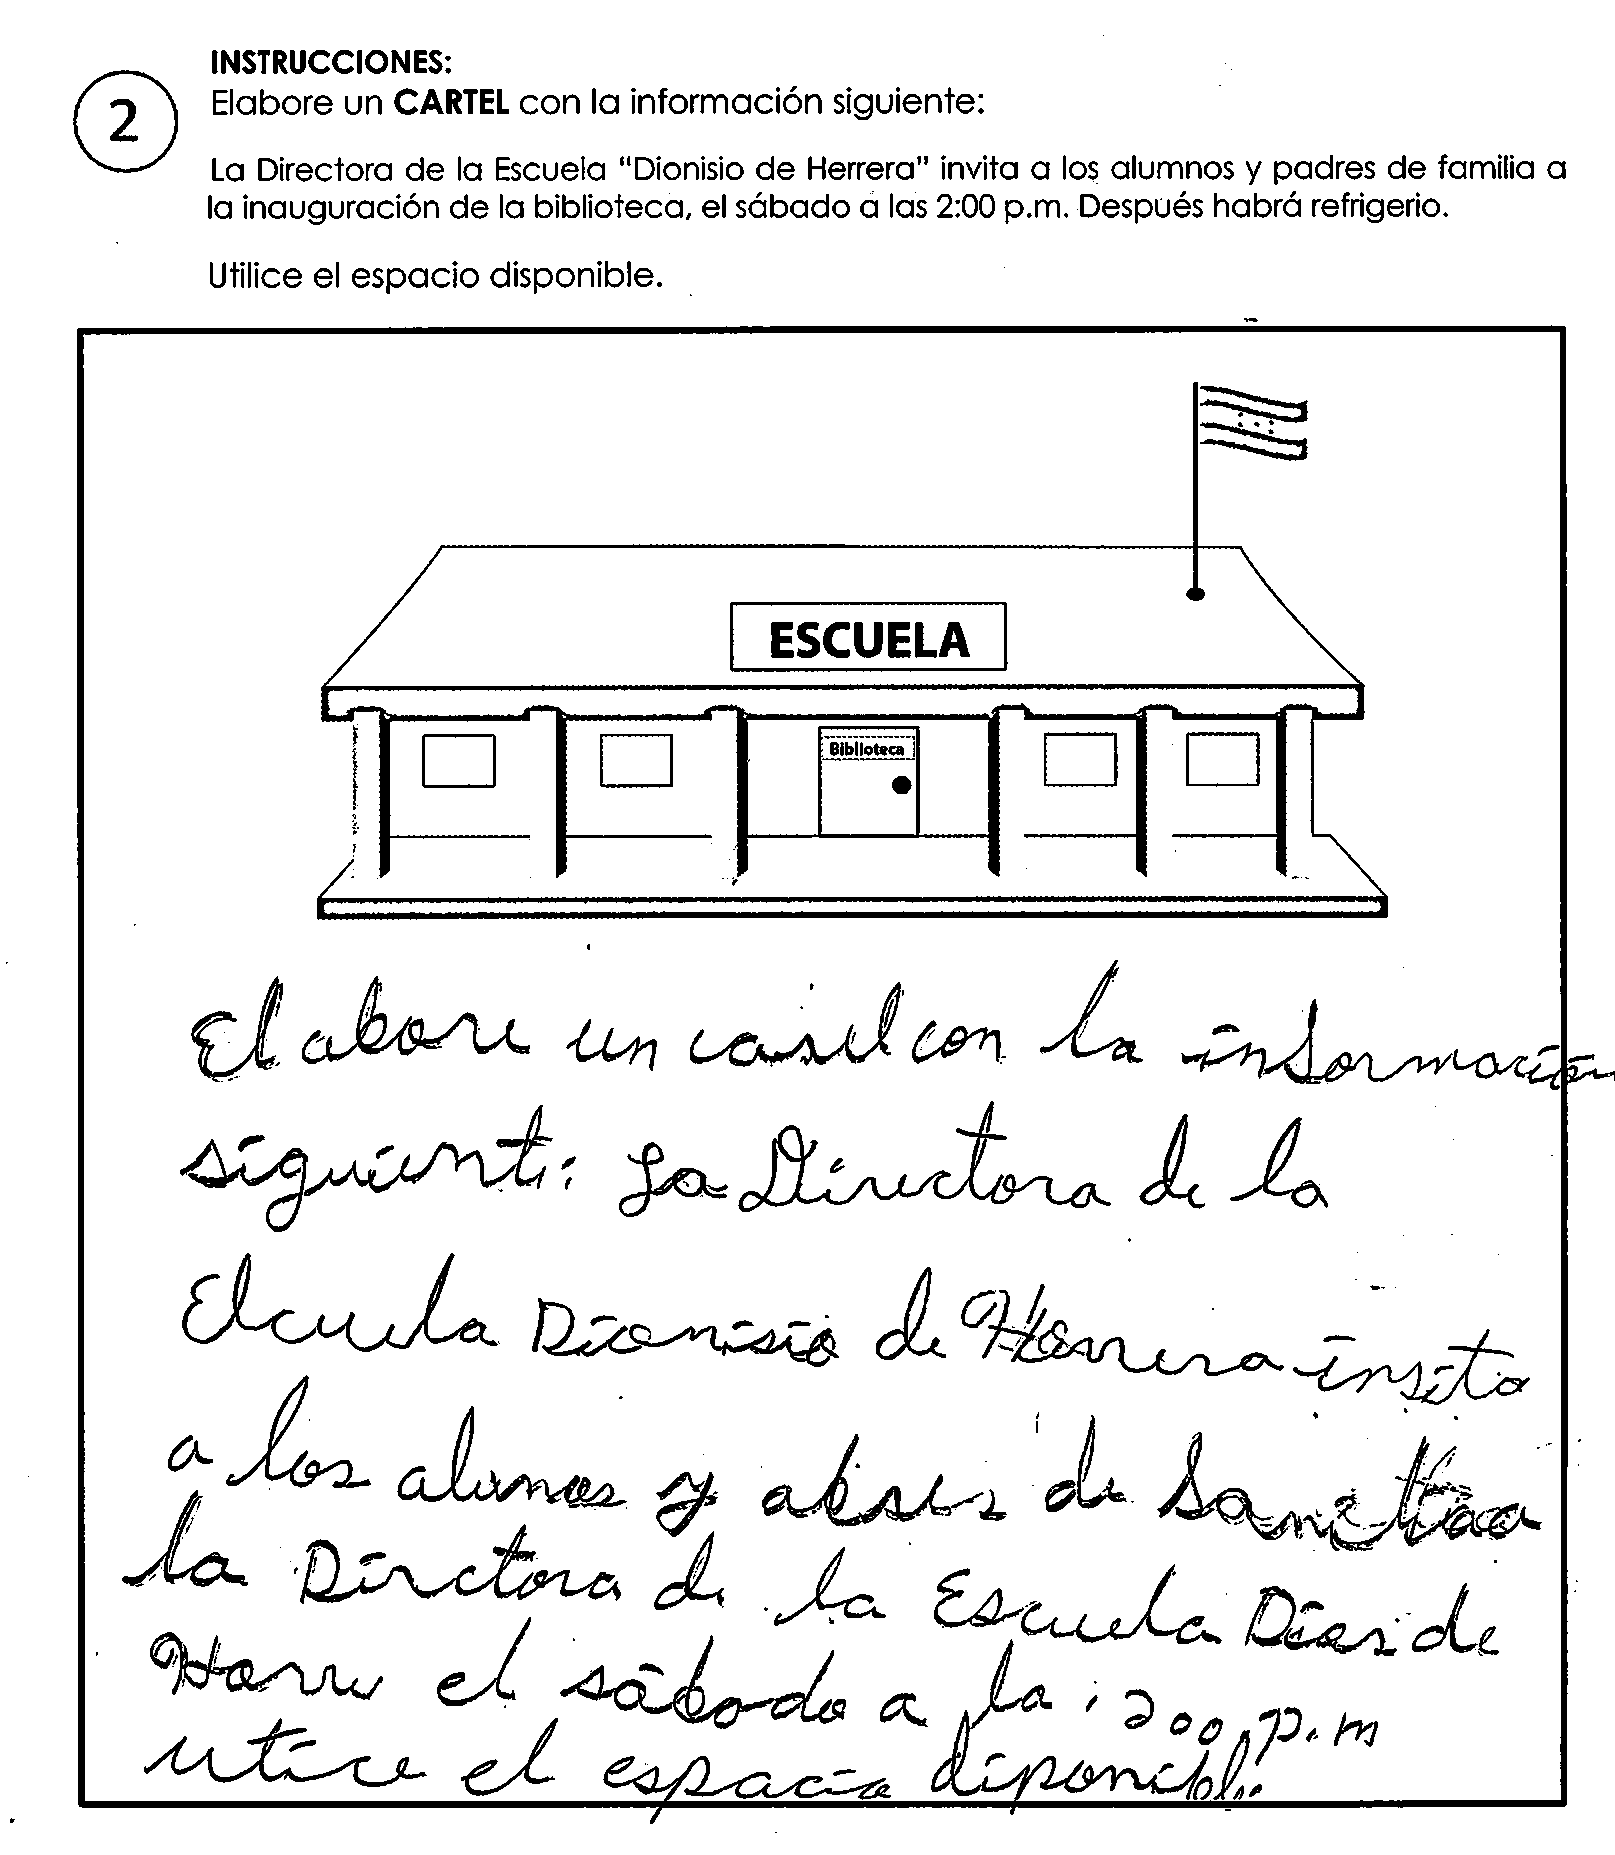 INSTRUCCIONES:
2
Elabore un CARTEL con la información siguiente:
La Directora de la Escuela "Dionisio de Herrera" invita a los alumnos y padres de familia a
la inauguración de la biblioteca, el sábado a las 2:00 p.m. Después habrá refrigerio.
Utilice el espacio disponible.
ESCUELA
Biblioteca
Elabore un casel con la información
siguiente: La Directora de la
Elcuela Dionisio de Herrera insita
a los alunos y de
la Dirctora de la Escuela de
el sábado a la 200 p.m
utice el espacio diponible